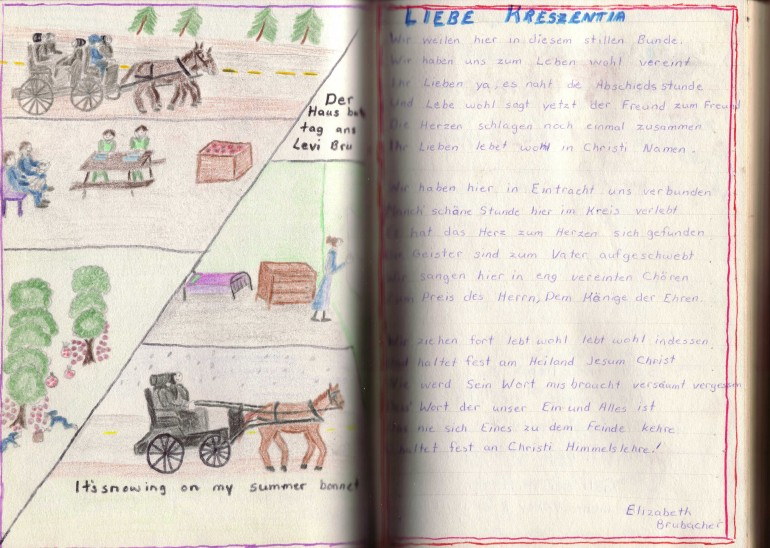 Der
Haus
tag ans
Levi Bru
It's snowing on my summer bonnet
LIEBE KRESZENTIA
Wir weilen hier in diesem stillen Bunde.
Wir haben uns zum Leben wohl vereint
Ihr Lieben ya, es naht de Abschieds stunde
Und Lebe wohl sagt yetzt der Freund zum Freund
Die Herzen schlagen noch einmal zusammen
Ihr Lieben lebet wohl in Christi Namen.
Wir haben hier in Eintracht uns verbunden
Manch schöne Stunde hier im Kreis verlebt
hat das Herz zum Herzen sich gefunden
Geister sind zum Vater aufgeschwebt
sangen hier in eng vereinten Chören
Zum Preis des Herrn, Dem Könige der Ehren.
Wir ziehen fort lebt wohl lebt wohl indessen
Und haltet fest am Heiland Jesum Christ
Nie werd Sein Wort mis braucht versäumt vergessen
Wort der unser Ein und Alles ist
nie sich Eines zu dem Feinde kehre
Haltet fest an Christi Himmelslehre!
Elizabeth
Brubacher